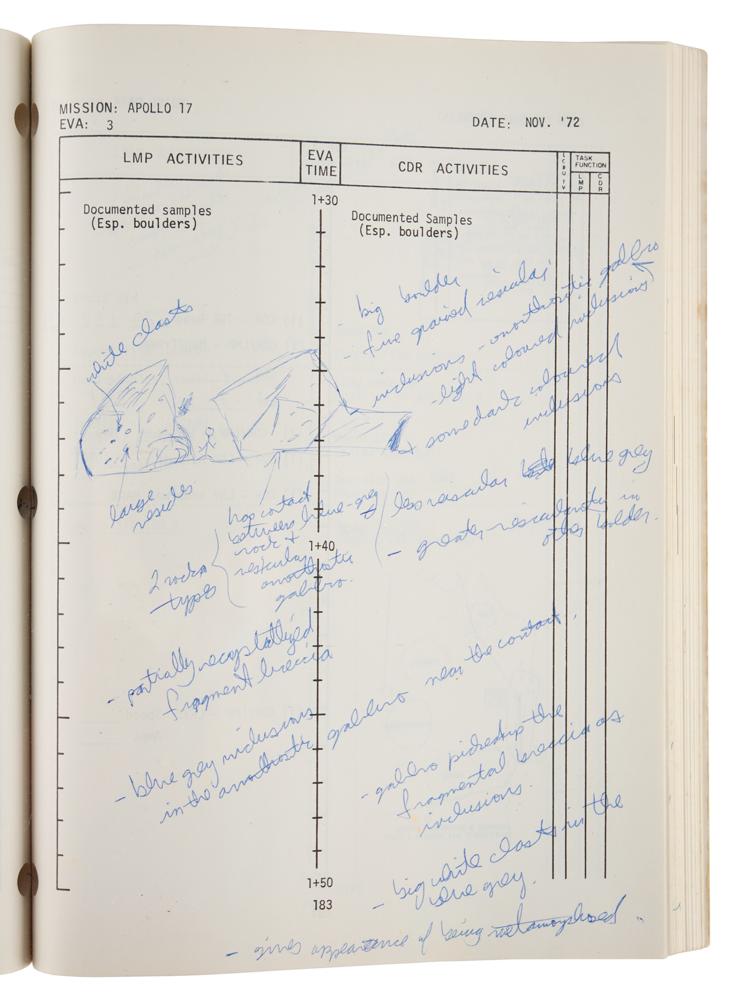 MISSION: APOLLO 17
EVA: 3
DATE: NOV. '72
LMP ACTIVITIES
EVA
TIME
CDR ACTIVITIES
LCRU/TV
TASK
FUNCTION
LMP
CDR
1+30
Documented samples
(Esp. boulders)
Documented Samples
(Esp. boulders)
- big boulder
- fine grained vesicular
inclusions - anorthositic gabbro
- light coloured inclusions
+ some dark coloured
inclusions
white clasts
large
vesicles
has contact
between blue-grey
rock +
vesicular
anorthositic
gabbro.
2 rock
types
less vesicular blue grey
- greater vesicularity in
other bolder.
1+40
- partially recrystallized
fragment breccia
- blue grey inclusions
in the anorthositic gabbro near the contact.
- gabbro picked up the
fragmental breccia as
inclusions.
- big white clasts in the
blue grey.
1+50
183
- appearance of being metamorphosed